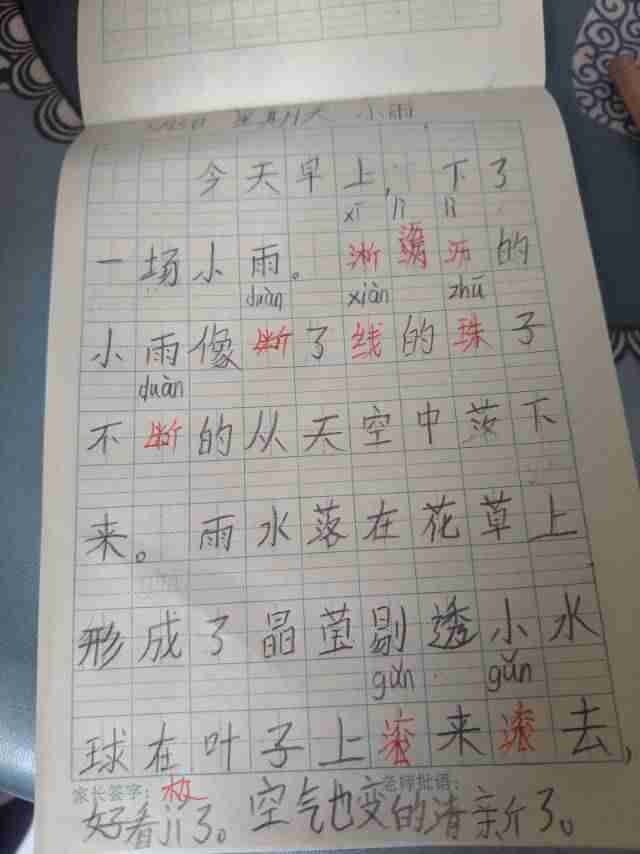 星期天 小雨
今天早上,下了
xī lì lì
一场小雨。淅沥沥的
duàn xiàn zhū
小雨像断了线的珠子
duàn
不断的从天空中落下
来。雨水落在花草上
形成了晶莹剔透小水
gǔn gǔn
球在叶子上滚来滚去,
家长签字: 老师批语:
极
好看jí了。空气也变的清新了。